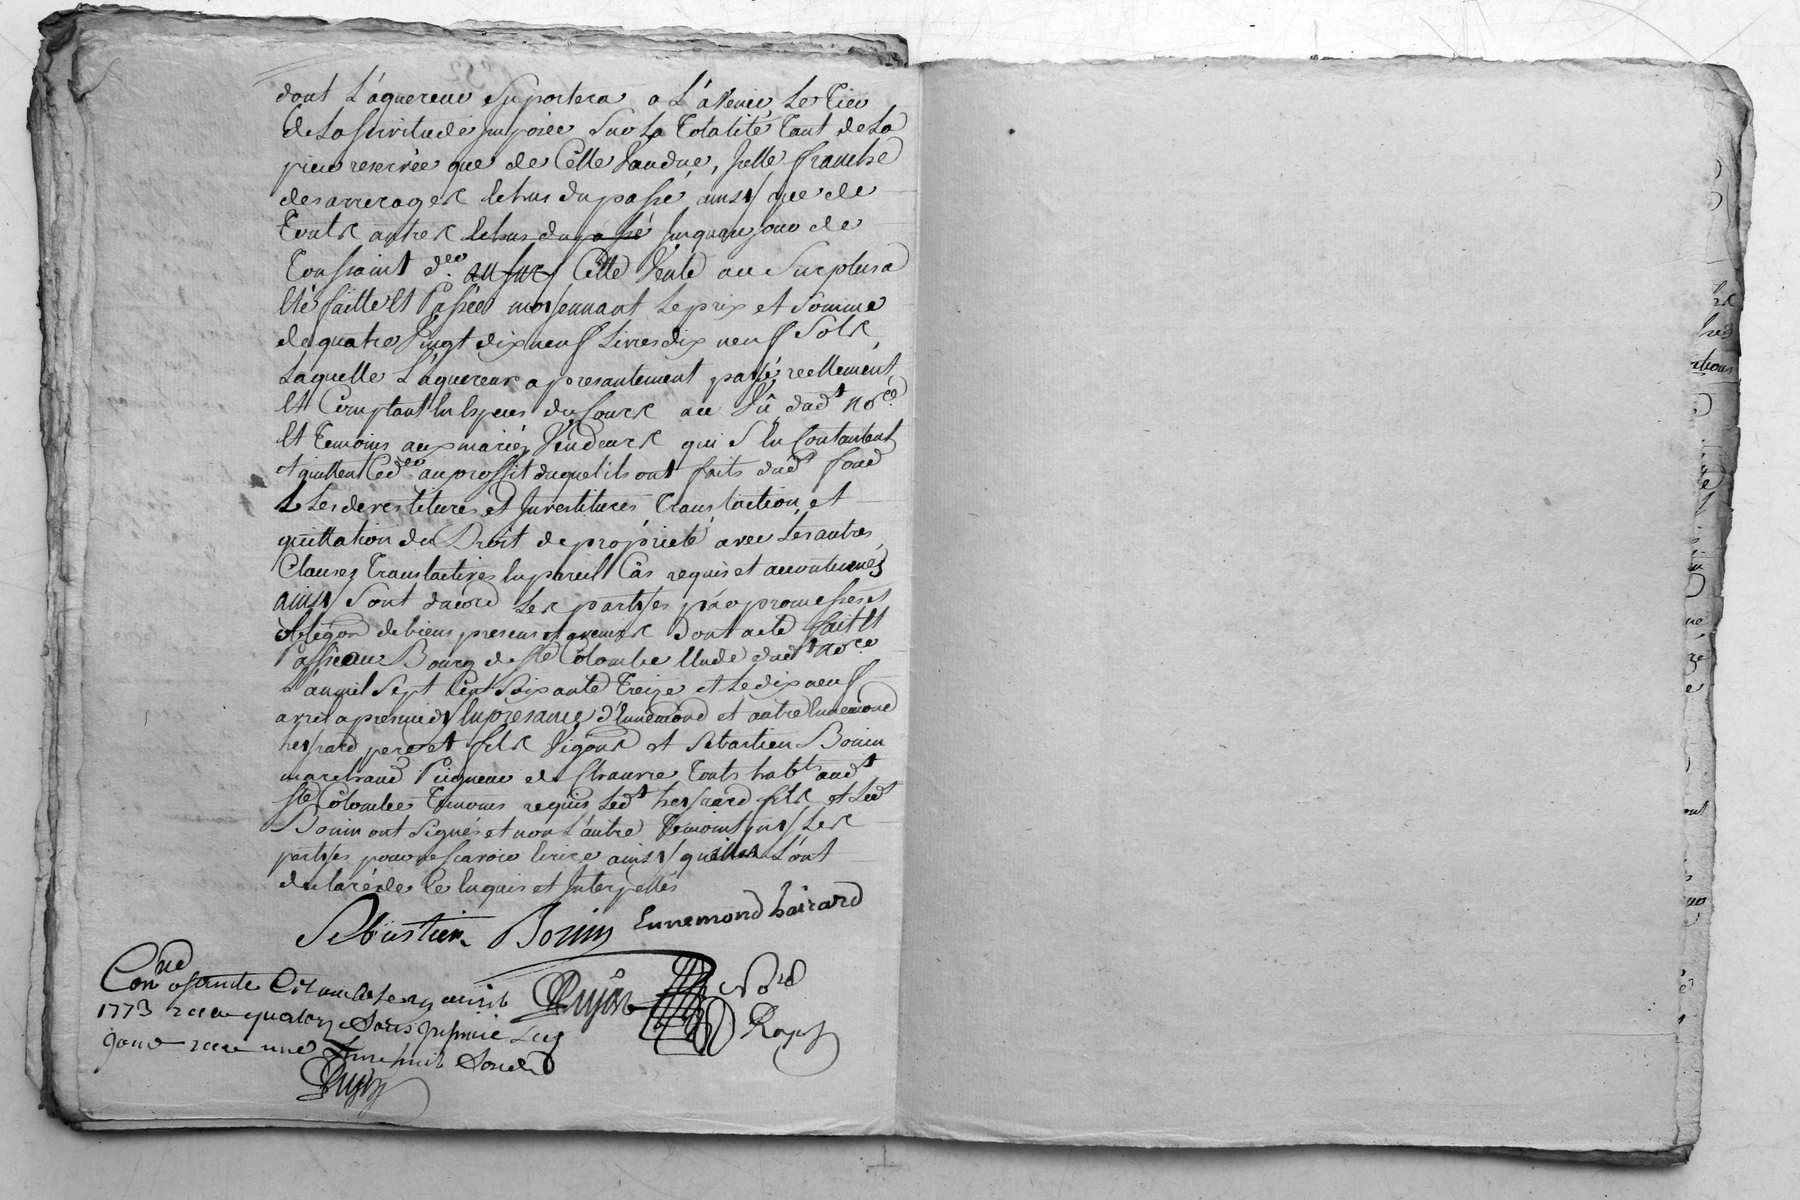 dont L'aquereur Suportera a L'avenir Le Tier
de La servitude imposée Sur La Totalité Tant de La
piece reservée que de Celle Vandue, Jcelle franche
des arrerages Echus du passé, ainsy que de
Touts autres Echus du passé Jusqu'au jour de
Toussaint d.er au sur Cette Vente au Surplus a
Eté faitte Et Passée moyennant Le prix et Somme
de quatre Vingt dix neuf Livres dix neuf Sols,
Laquelle L'aquereur a presantement payé reellement
Et Comptant En Especes du Cours au Vû dud.t No.re
Et Temoins aux mariés Vendeurs qui S'En Contantent
et quittent Led.er au proffit duquel ils ont faits dud. fond
Les devestitures et Jnvestitures Translaction et
quittation du Droit de propriété avec Les autres
Clauses Translactives En pareil Cas requis et accoutumés
ainsy Sont d'acord Les partyes par promesses et
obligõn de biens presens et avenirs Dont acte fait Et
Passé au Bourg de S.te Colombe Etude dud.t No.re
L'an mil Sept Cent Soixante Treize et Le dix neuf
avril apres midy En presance d'Ennemond et autre Ennemond
heyrard pere et fils Vigons et Sebastien Bonin
marchand Peigneur de Chanvre Touts hab.ts aud.t
S.te Colombe Temoins requis Led.t heyrard fils et Led.t
Bonin ont Signés et non L'autre Temoint ny Les
partyes pour ne Scavoir Ecrire ainsy qu'elles L'ont
declaré de Ce Enquis et Interpellés
Sebastien Bonin Ennemond hairard
Con.lé
1773 reçu quatorze Sous
jour reçu une Livre huit Sous